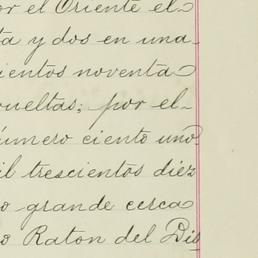 or el Oriente el
ta y dos en una
ientos noventa
vueltas; por el
úmero ciento uno
il trescientos diez
o grande cerca
o Raton del Dis